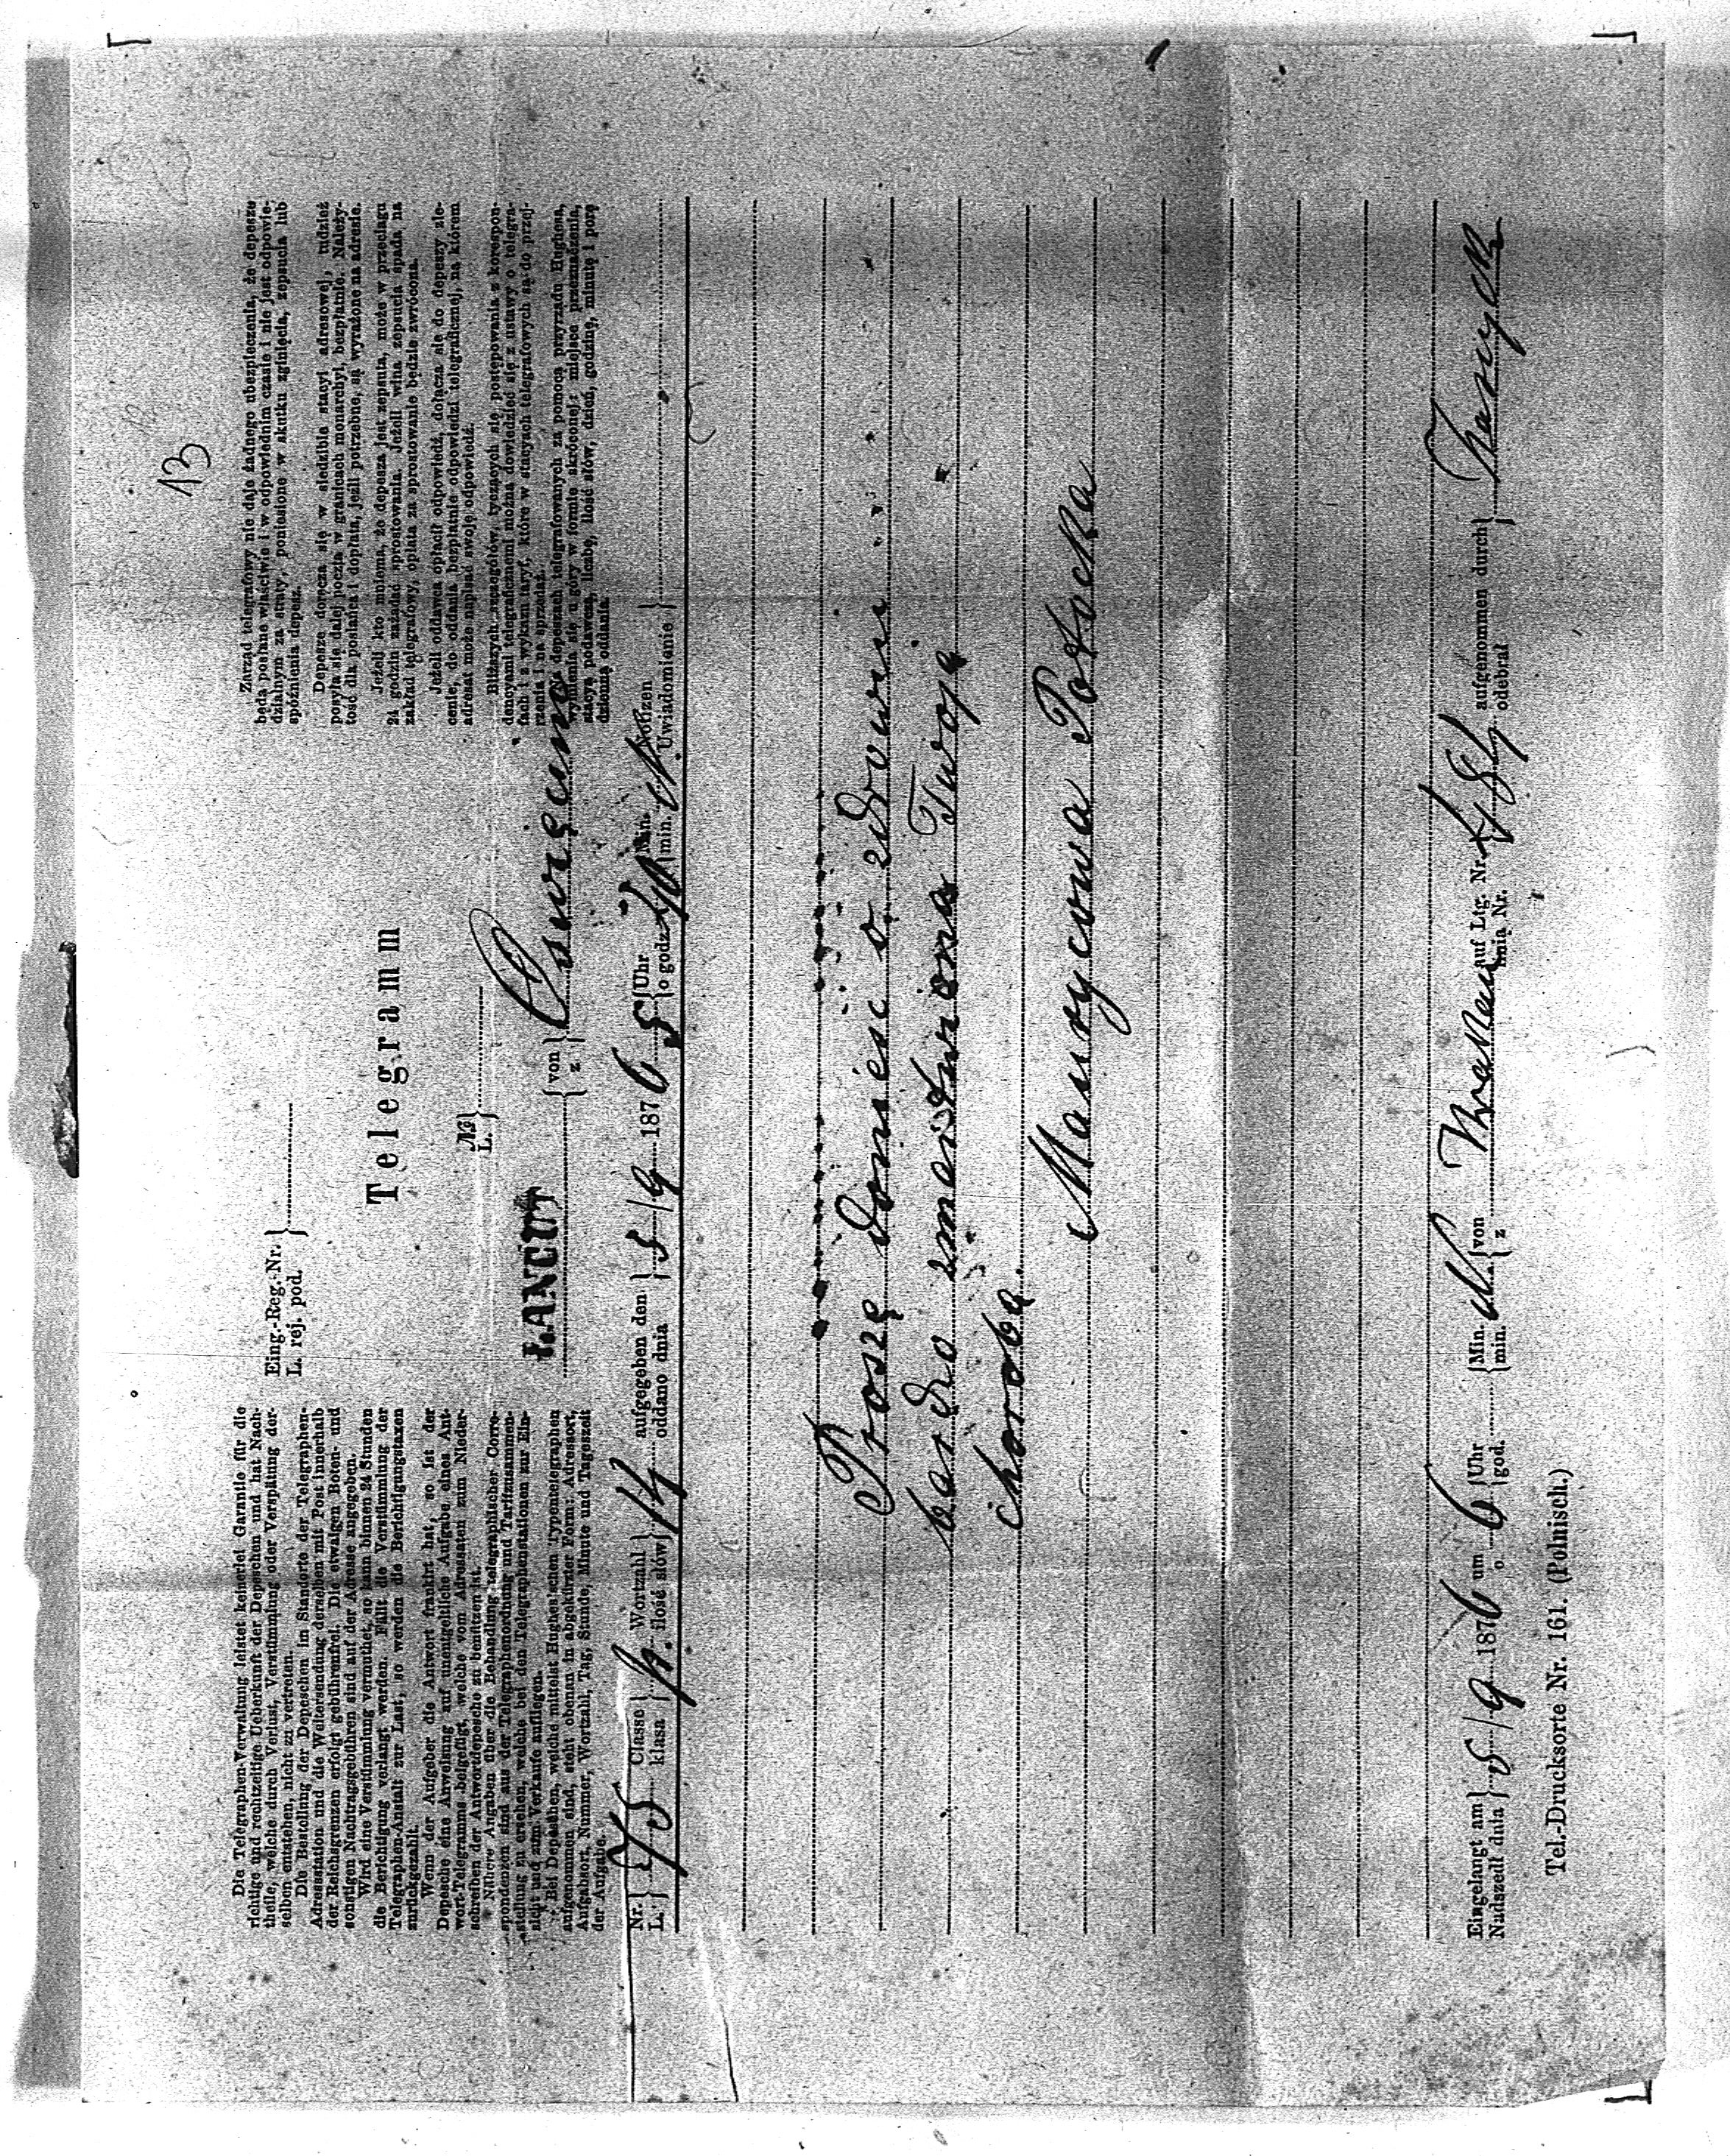 13
Die Telegraphen-Verwaltung leistet keinerlei Garantie für die
richtige und rechtzeitige Ueberkunft der Depeschen und hat Nach-
theile, welche durch Verlust, Verstümmlung oder Verspätung der-
selben entstehen, nicht zu vertreten.
Die Bestellung der Depeschen im Standorte der Telegraphen-
Adressstation und die Weitersendung derselben mit Post innerhalb
der Reichsgrenzen erfolgt gebührenfrei. Die etwaigen Boten- und
sonstigen Nachtragsgebühren sind auf der Adresse angegeben.
Wird eine Verstümmlung vermuthet, so kann binnen 24 Stunden
die Berichtigung verlangt werden. Fällt die Verstümmlung der
Telegraphen-Anstalt zur Last, so werden die Berichtigungstaxen
zurückgezahlt.
Wenn der Aufgeber die Antwort frankirt hat, so ist der
Depesche eine Anweisung auf unentgeltliche Aufgabe eines Ant-
wort-Telegramms beigefügt, welche vom Adressaten zum Nieder-
schreiben der Antwortdepesche zu benützen ist.
Nähere Angaben über die Behandlung telegraphischer Corre-
spondenzen sind aus der Telegraphenordnung und Tarifzusammen-
stellung zu ersehen, welche bei den Telegraphenstationen zur Ein-
sicht und zum Verkaufe aufliegen.
Bei Depeschen, welche mittelst Hughes'schen Typentelegraphen
aufgenommen sind, steht obenan in abgekürzter Form: Adressort,
Aufgabsort, Nummer, Wortzahl, Tag, Stunde, Minute und Tageszeit
der Aufgabe.
Eing.-Reg.-Nr.
L. rej. pod.
Telegramm
№
L.
ŁANCUT von z Oswięcima
Zarząd telegrafowy nie daje żadnego ubezpieczenia, że depesze
będą posłane właściwie i w odpowiednim czasie i nie jest odpowie-
dzialnym za straty, poniesione w skutku zginięcia, zepsucia lub
spóźnienia depesz.
Depesze doręcza się w siedzibie stacyi adresowej, tudzież
posyła się dalej pocztą w granicach monarchyi, bezpłatnie. Należy-
tość dla posłańca i dopłata, jeżli potrzebne, są wyrażone na adresie.
Jeżelj kto mniema, że depesza jest zepsuta, może w przeciągu
24 godzin zażądać sprostowania. Jeżeli wina zepsucia spada na
zakład telegrafowy, opłata za sprostowanie będzie zwrócona.
Jeżeli oddawca opłacił odpowiedź, dołącza się do depeszy zle-
cenie, do oddania bezpłatnie odpowiedzi telegraficznej, na którem
adresat może napisać swoję odpowiedź.
Bliższych szczegółów, tyczących się postępowania z korespon-
dencyami telegraficznemi można dowiedzieć się z ustawy o telegra-
fach i z wykazu taryf, które w stacyach telegrafowych są do przej-
rzenia i na sprzedaż.
Na depeszach telegrafowanych za pomocą przyrządu Hughesa,
wymienia się u góry w formie skróconej: miejsce przeznaczenia,
stacyą podawczą, liczbę, ilość słów, dzień, godzinę, minutę i porę
dzienną oddania.
Nr. L. 75 Classe klasa Wortzahl ilość słów 14 aufgegeben den oddano dnia 5/9 1876 5 Uhr o godz. 40 Min. min. Notizen Uwiadomienie
Proszę donieść o zdrowiu
bardzo zmartwiona Twoją
chorobą.
Maurycowa Potocka
Eingelangt am Nadszedł dnia 5/9 1876 um o 6 Uhr god. Min. min. von z Krakau auf Ltg. Nr. linia Nr. aufgenommen durch odebrał
Tel.-Drucksorte Nr. 161. (Polnisch.)